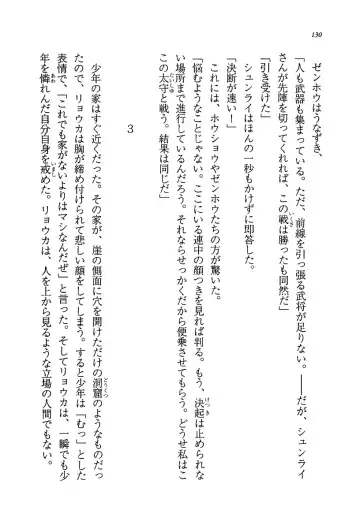 130
ゼンホウはうなずき、
「人も武器も集まっている。ただ、前線を引っ張る武将が足りない。――だが、シュンライ
さんが先陣を切ってくれれば、この戦は勝ったも同然だ」
「引き受けた」
シュンライはほんの一秒もかけずに即答した。
「決断が速い！」
これには、ホウショウやゼンホウたちの方が驚いた。
「悩むようなことじゃない。ここにいる連中の顔つきを見れば判る。もう、決起は止められな
い場所まで進行しているんだろう。それならせっかくだから便乗させてもらう。どうせ私はこ
この太守と戦う。結果は同じだ」
3
少年の家はすぐ近くだった。その家が、崖の側面に穴を開けただけの洞窟のようなものだっ
たので、リョウカは胸が締め付けられて悲しい顔をしてしまう。すると少年は「むっ」とした
表情で、「これでも家がないよりはマシなんだぜ」と言った。そしてリョウカは、一瞬でも少
年を憐れんだ自分自身を戒めた。リョウカは、人を上から見るような立場の人間でもない。